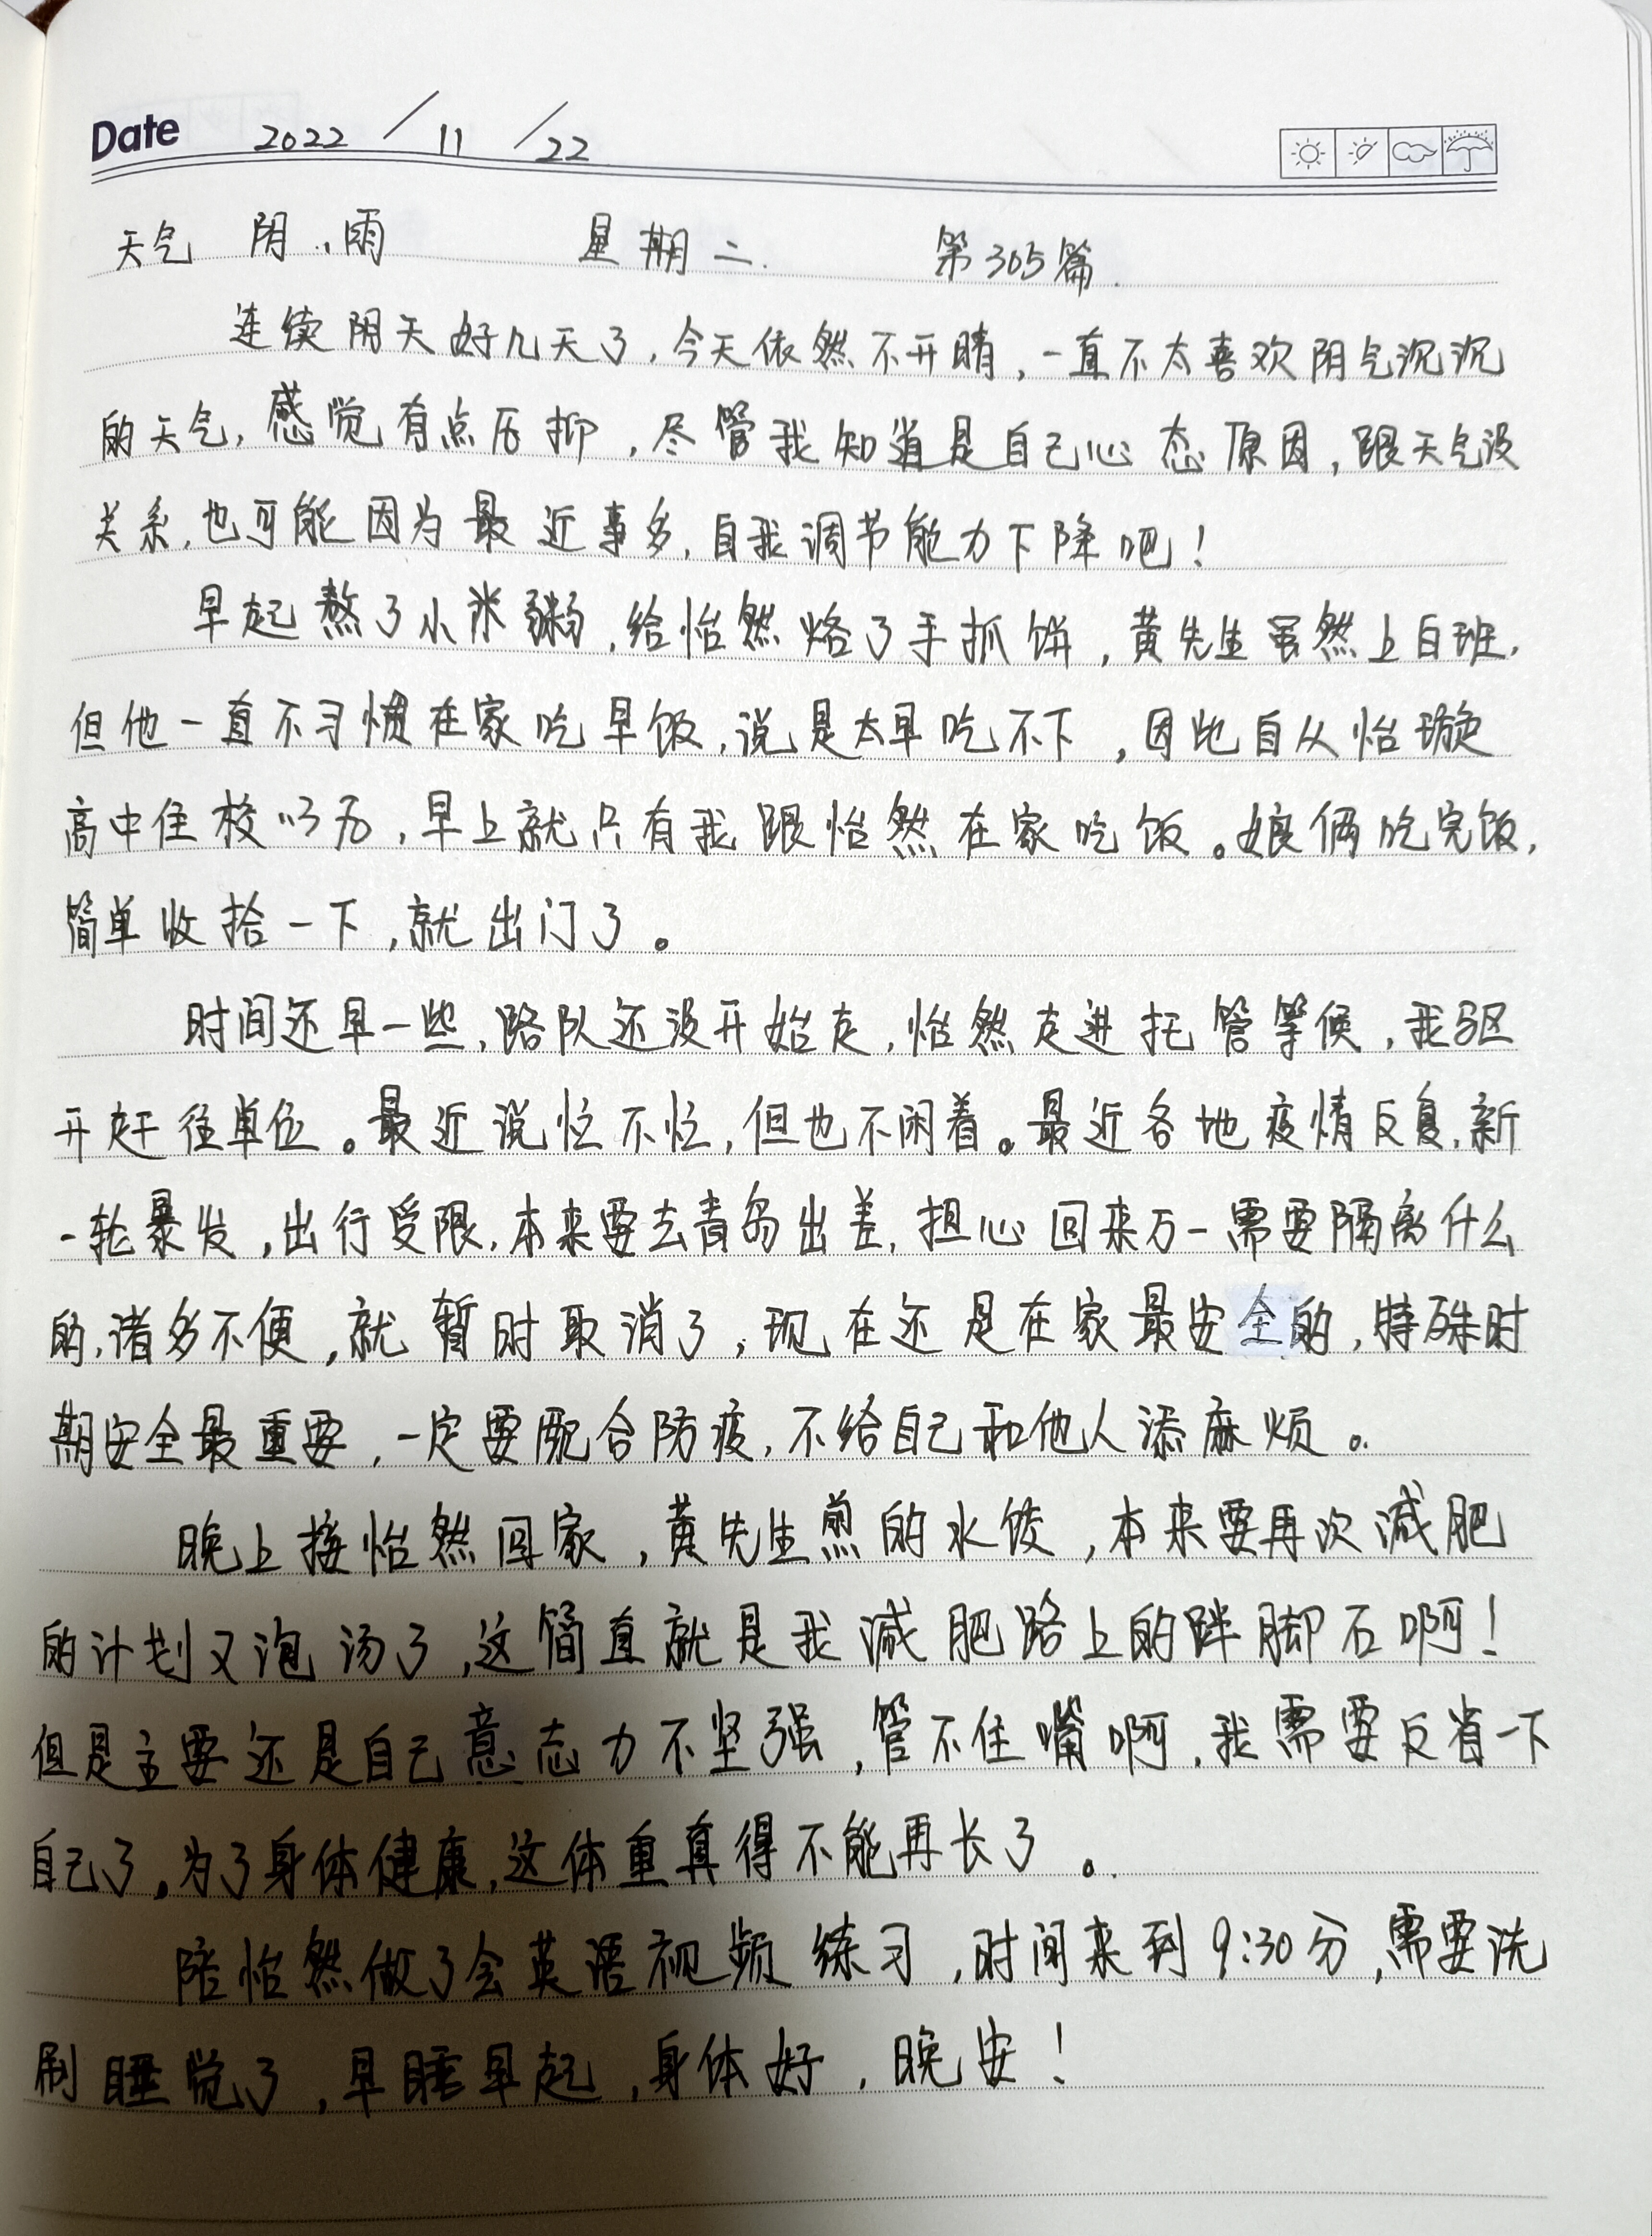 Date 2022 / 11 / 22
天气 阴、雨 星期二. 第305篇.
连续阴天好几天了，今天依然不开晴，一直不太喜欢阴气沉沉
的天气，感觉有点压抑，尽管我知道是自己心态原因，跟天气没
关系，也可能因为最近事多，自我调节能力下降吧！
早起熬了小米粥，给怡然烙了手抓饼，黄先生虽然上白班，
但他一直不习惯在家吃早饭，说是太早吃不下，因此自从怡璇
高中住校以后，早上就只有我跟怡然在家吃饭。娘俩吃完饭，
简单收拾一下，就出门了。
时间还早一些，路队还没开始走，怡然走进托管等候，我驱
开赶往单位。最近说忙不忙，但也不闲着。最近各地疫情反复，新
一轮暴发，出行受限，本来要去青岛出差，担心回来万一需要隔离什么
的，诸多不便，就暂时取消了，现在还是在家最安全的，特殊时
期安全最重要，一定要配合防疫，不给自己和他人添麻烦。
晚上接怡然回家，黄先生煎的水饺，本来要再次减肥
的计划又泡汤了，这简直就是我减肥路上的跘脚石啊！
但是主要还是自己意志力不坚强，管不住嘴啊，我需要反省一下
自己了。为了身体健康，这体重真得不能再长了。
陪怡然做了会英语视频练习，时间来到9:30分，需要洗
刷睡觉了，早睡早起，身体好，晚安！